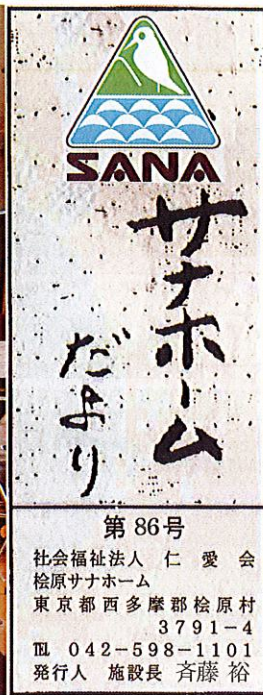 SANA
サナホーム
だより
第86号
社会福祉法人 仁愛会
桧原サナホーム
東京都西多摩郡桧原村
3791-4
℡ 042-598-1101
発行人 施設長 斉藤 裕